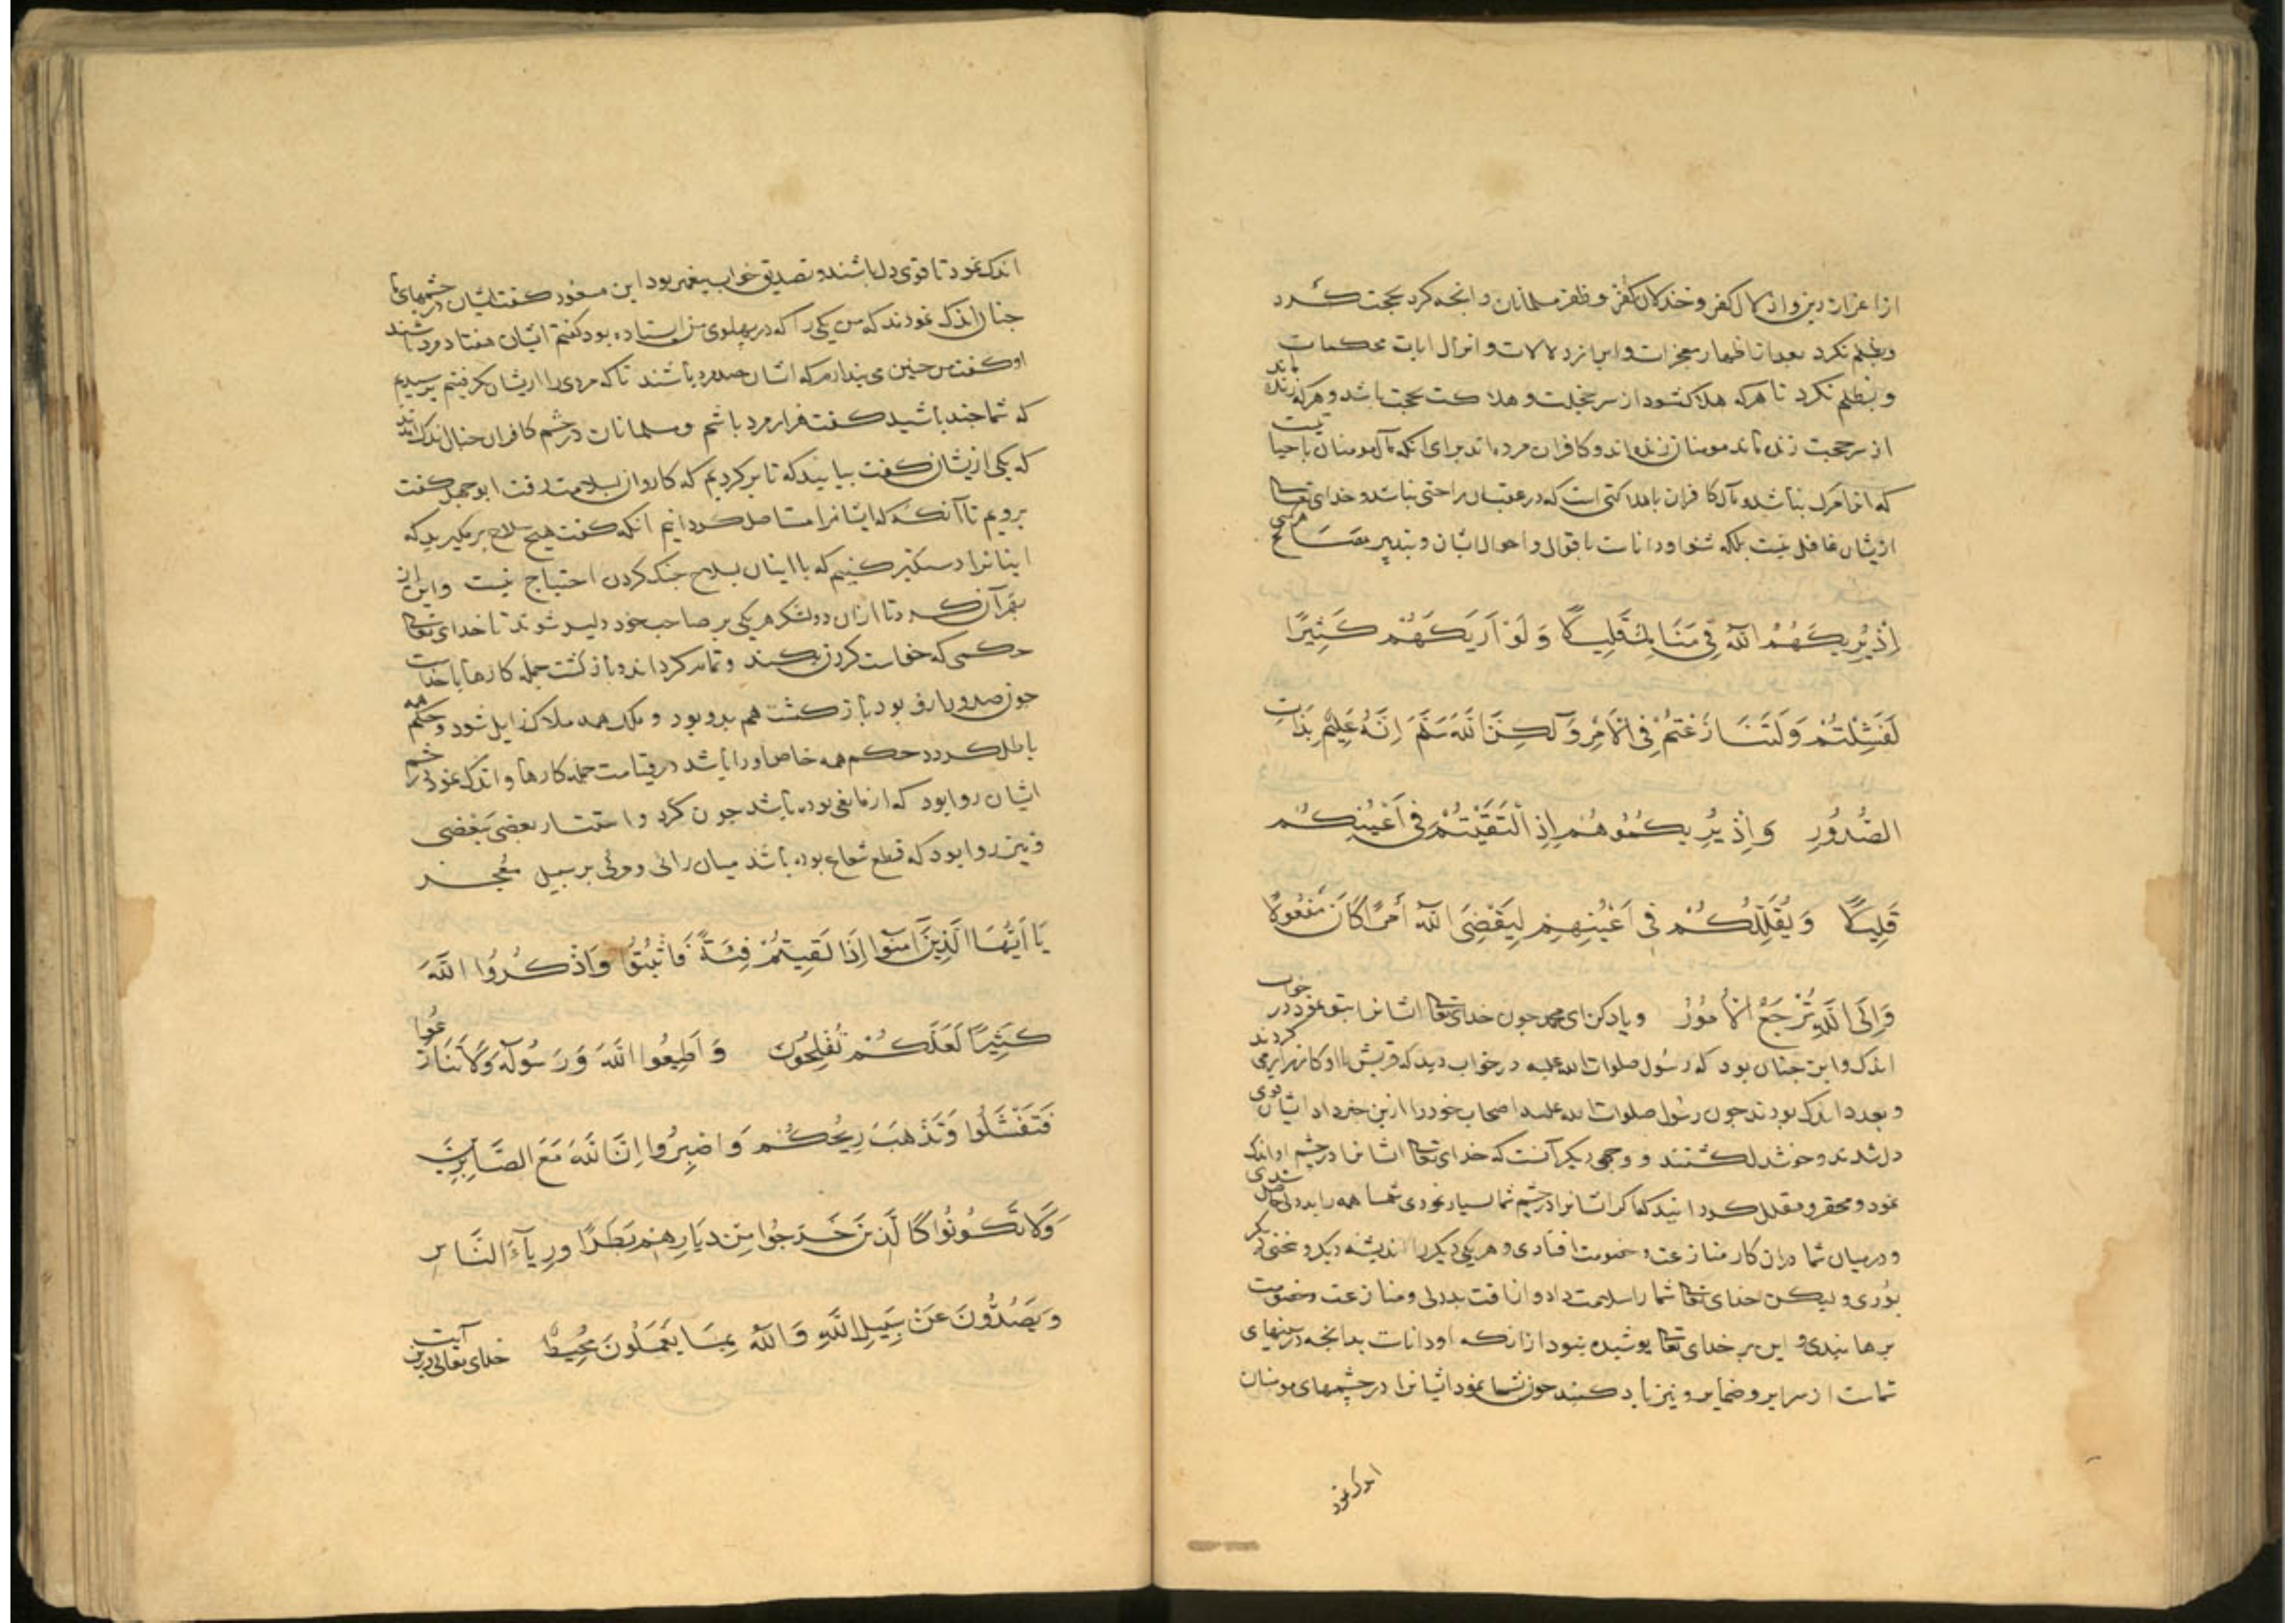 از اعزاز دین و اذلال کفر و خذلان کافر و ظفر مسلمانان و انجه کرد بحجت کرد
و بظلم نکرد بعد از اظهار معجزات و ابراز دلالات و انزال ایات محکمات
و بظلم نکرد تا هرکه هلاک شود از سر حجت و هلاکت بحجت باشد و هرکه زنده ماند
از سر حجت زنده ماند مومنان زنده اند و کافران مرده اند برای انکه مآل مومنان با حیا تیست
که انرا مرک نباشد و مآل کافران با هلاکتی است که در عقب ان راحتی نباشد و خدای تعالی
ازیشان غافل نیست بلکه شنوا و داناست باقوال و احوال ایشان و بتدبیر مصالح هرکسی
اِذْ یُرِیکَهُمُ اللّٰهُ فِی مَنَامِکَ قَلِیلًا وَ لَوْ اَرَیکَهُمْ کَثِیرًا
لَفَشِلْتُمْ وَ لَتَنَازَعْتُمْ فِی الْاَمْرِ وَ لٰکِنَّ اللّٰهَ سَلَّمَ اِنَّهُ عَلِیمٌ بِذَاتِ
الصُّدُورِ وَ اِذْ یُرِیکُمُوهُمْ اِذِ الْتَقَیْتُمْ فِی اَعْیُنِکُمْ
قَلِیلًا وَ یُقَلِّلُکُمْ فِی اَعْیُنِهِمْ لِیَقْضِیَ اللّٰهُ اَمْرًا کَانَ مَفْعُولًا
وَ اِلَی اللّٰهِ تُرْجَعُ الْاُمُورُ و یاد کن ای محمد جون خدای تعالی ایشانرا بتو نمود در خواب
اندک و این جنان بود که رسول صلوات الله علیه در خواب دید که قریش با او کارزار می کردند
و بعدد اندک بودند جون رسول صلوات الله علیه اصحاب خود را ازین خبر داد ایشان قوی
دل شدند و خوشدل کشتند و وجهی دیکر آنست که خدای تعالی ایشانرا در چشم او اندک
نمود و محقر و مقلل کردانید که اکر ایشانرا در چشم شما بسیار نمودی شما همه را بددلی حاصل شدی
و در میان شما دران کار منازعت و خصومت افتادی و هر یکی دیکر را اندیشه دیکر و سخنی دیکر
بودی ولیکن خدای تعالی شما را سلامت داد و از آفت بددلی و منازعت و خصومت
برهانیدی و این بر خدای تعالی پوشیده نبود ازانکه او داناست بدانجه در سینهای
شماست از سرایر و ضمایر و نیز یاد کنید جون بشما نمود ایشانرا در چشمهای مومنان
اندک نمود
اندک نمود تا قوی دل باشند و تصدیق خواب پیغمبر بود ابن مسعود کفت ایشان در چشمهای ما
جنان اندک نمودند که من یکی را که در پهلوی من استاده بود کفتم ایشان هفتاد مرد باشند
او کفت من جنین می پندارم که ایشان صد مرد باشند تا که مردی را ازیشان بکرفتیم پرسیدیم
که شما جند باشید کفت هزار مرد باشیم و مسلمانان در چشم کافران جنان اندک
که یکی ازیشان کفت بیایید که تا برکردیم که کاروان بسلامت رفت ابو جهل کفت
برویم تا آنکه که ایشانرا مستاصل کردانیم انکه کفت هیچ سلاح برمکیرید که
اینانرا دستکیر کنیم که با اینان بسلاح جنک کردن احتیاج نیست و این از
بهر آن کرد تا ازان دو لشکر هر یکی بر صاحب خود دلیر شوند تا خدای تعالی
حکمی که خواست کردن بکند و تمام کرداند و بازکشت جمله کارها با خداست
جون صدور ازو بود بازکشت هم بدو بود و ملک همه ملاک زایل شود و حکم همه
باطل کردد حکم همه خاص او را باشد در قیامت جمله کارها و اندک نمودن در چشم
ایشان روا بود که از مانعی بوده باشد جون کرد و استتار بعضی ببعضی
و نیز روا بود که قطع شعاع بوده باشد میان رائی و مرئی بر سبیل معجز
یَا اَیُّهَا الَّذِینَ آمَنُوا اِذَا لَقِیتُمْ فِئَةً فَاثْبُتُوا وَ اذْکُرُوا اللّٰهَ
کَثِیرًا لَعَلَّکُمْ تُفْلِحُونَ وَ اَطِیعُوا اللّٰهَ وَ رَسُولَهُ وَ لَا تَنَازَعُوا
فَتَفْشَلُوا وَ تَذْهَبَ رِیحُکُمْ وَ اصْبِرُوا اِنَّ اللّٰهَ مَعَ الصَّابِرِینَ
وَ لَا تَکُونُوا کَالَّذِینَ خَرَجُوا مِنْ دِیَارِهِمْ بَطَرًا وَ رِیآءَ النَّاسِ
وَ یَصُدُّونَ عَنْ سَبِیلِ اللّٰهِ وَ اللّٰهُ بِمَا یَعْمَلُونَ مُحِیطٌ خدای تعالی درین آیت